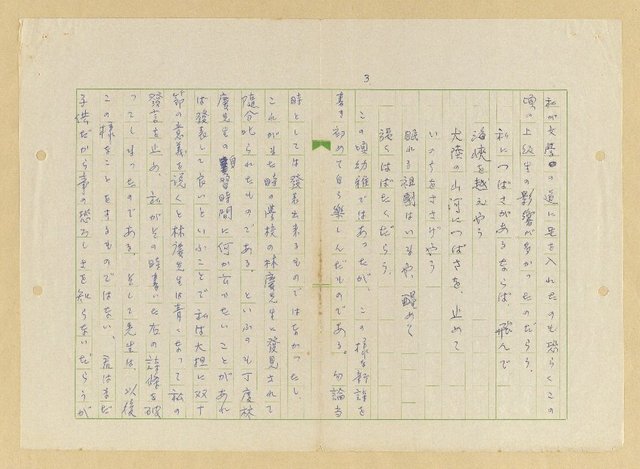 3
私が文學の道に足を入れたのも恐らくこの
頃の上級生の影響が多かったのだらう。
私につばさがあるならば 飛んで
海峡を越えやう
大陸の山河につばさを、止めて
いのちをささげやう
眠れる祖國はいまや、醒めて
强くはばたくだらう。
この頃幼稚ではあったが、この様な新詩を
書き初めて自ら樂しんだものである。勿論当
時としては發表出来るものではなかったし、
これが또た時の學校の林慶先生に發見されて
隨分叱られたものである。といふのも丁度林
慶先生の自習時間に何か言ひたいことがあれ
ば發表して良いといふことで私は大担に双十
節の意義を説くと林慶先生は青くなって私の
發言を止め、私がその時書いた右の詩條を破
ってしまったのである。そして先生は、以後
この様なことをするものではない、君はまだ
子供だから事の恐ろしさを知らないだらうが